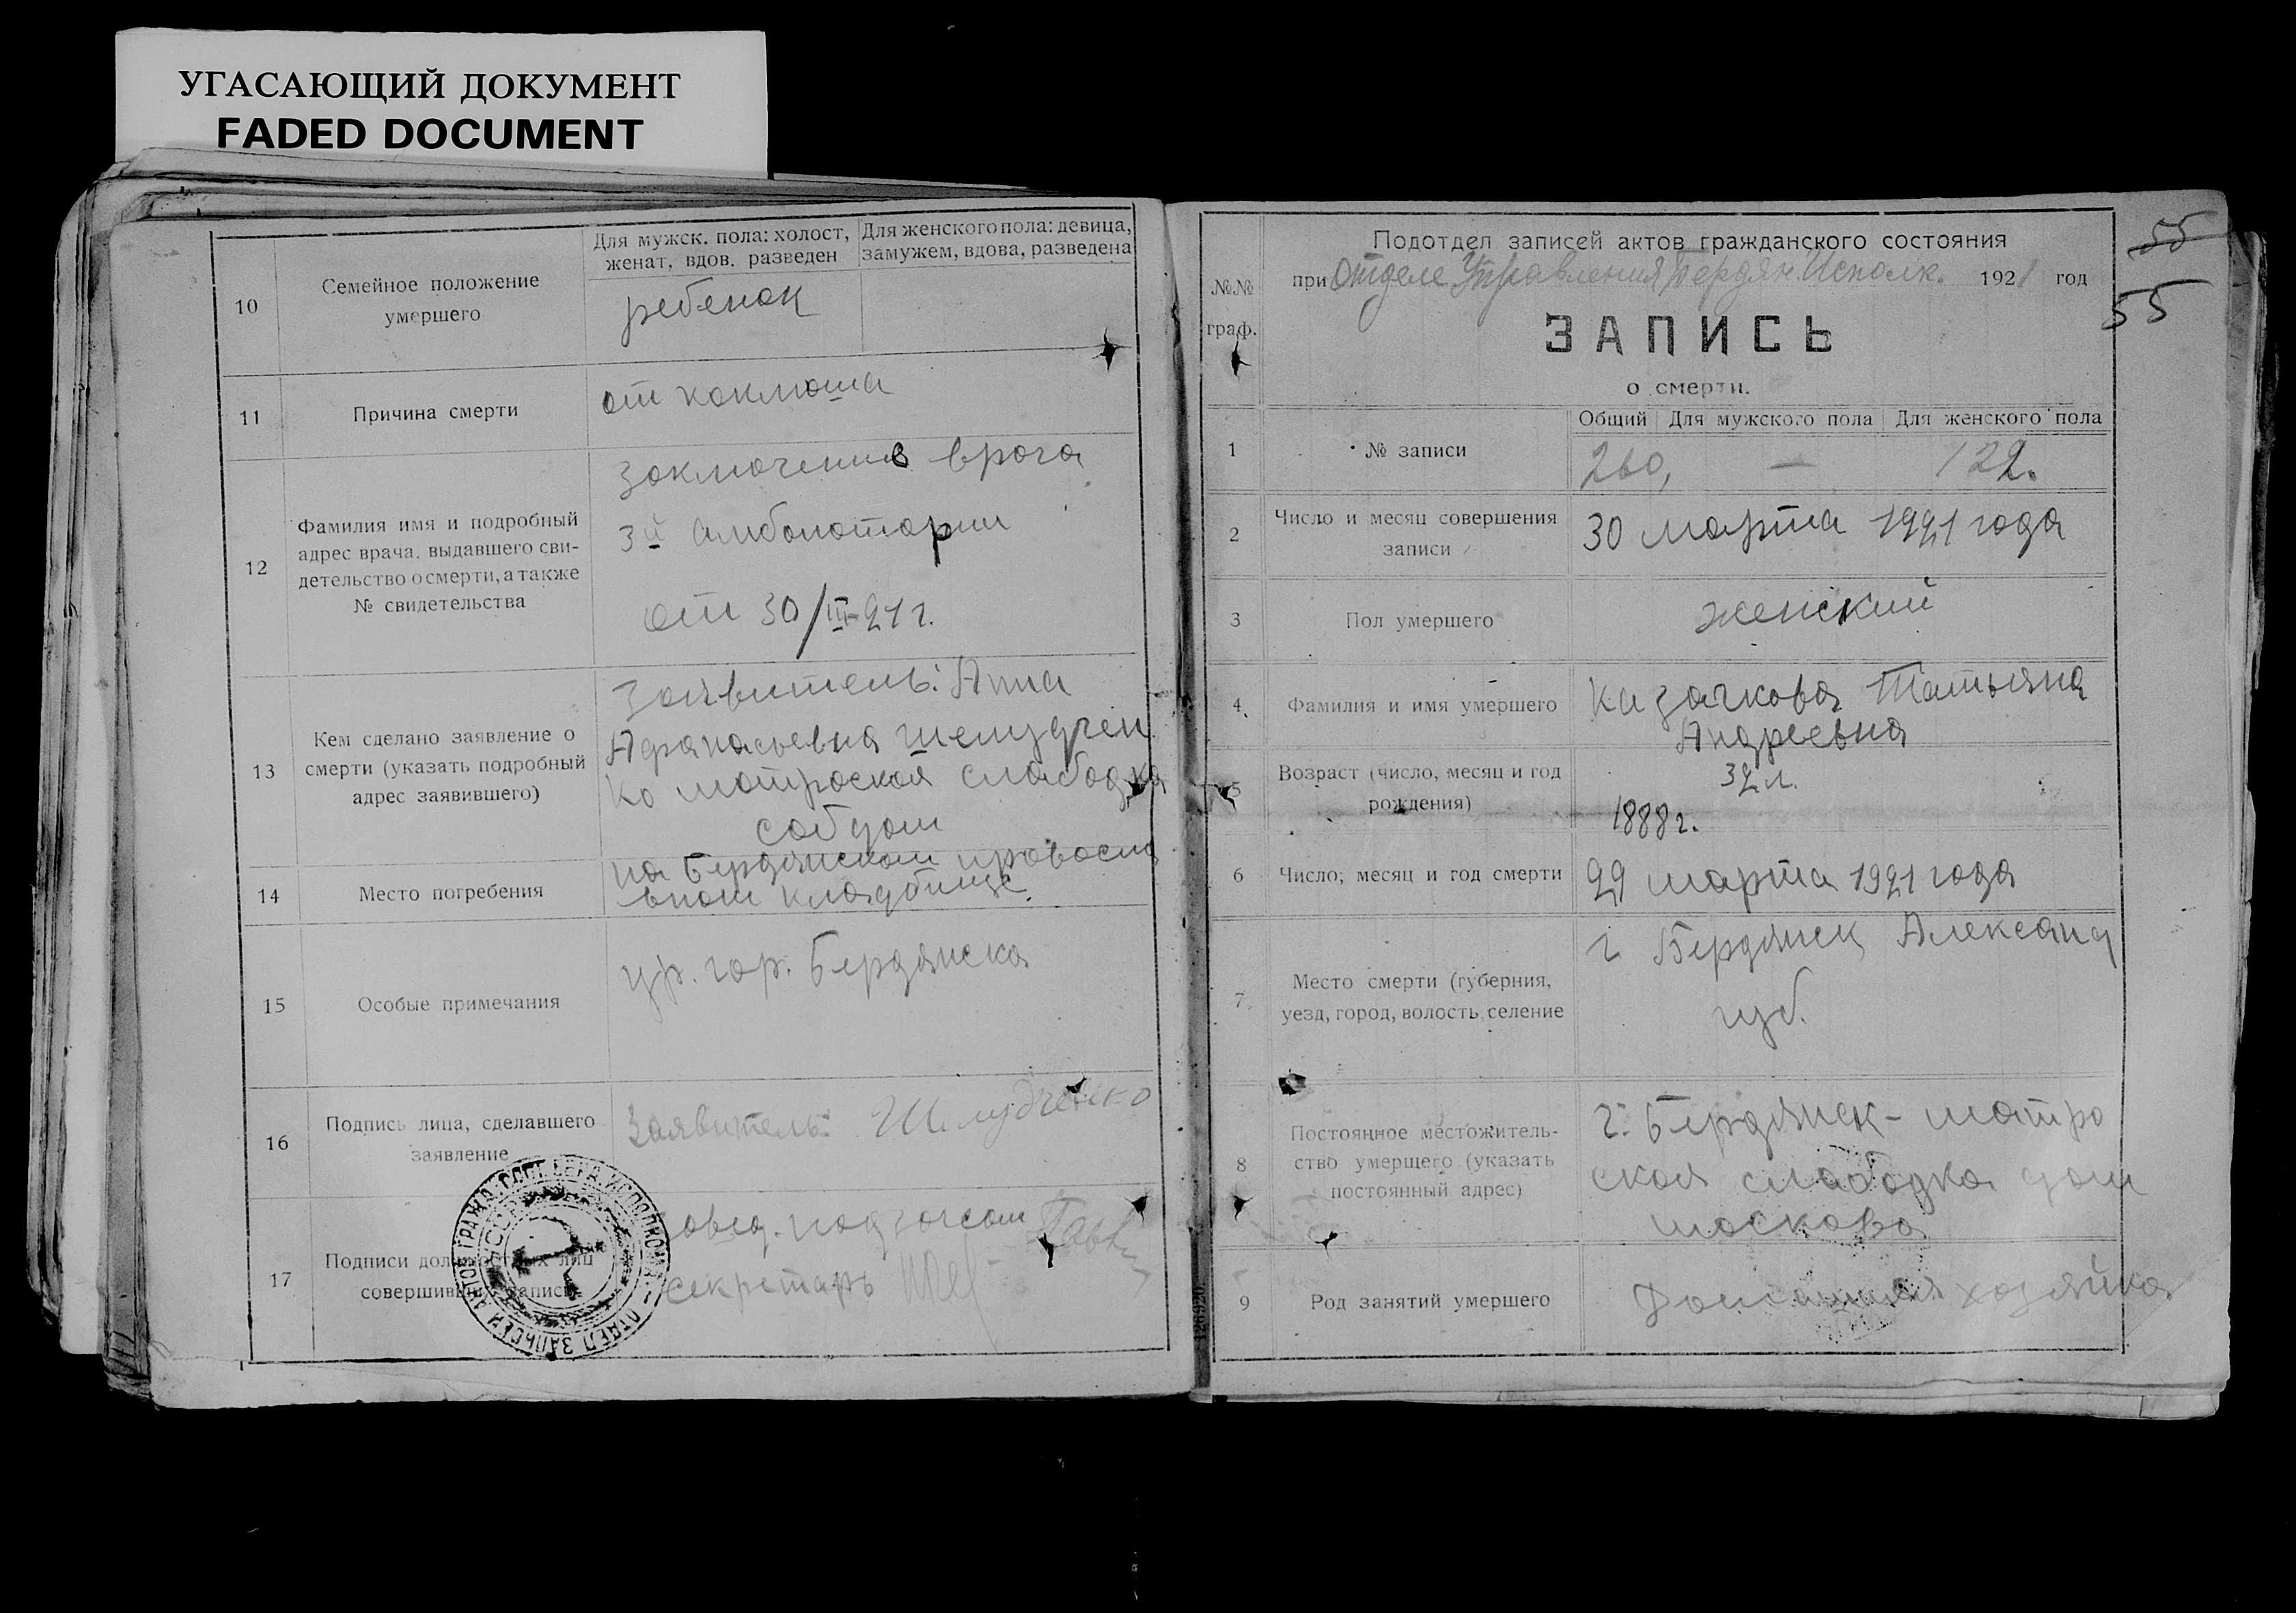 УГАСАЮЩИЙ ДОКУМЕНТ
FADED DOCUMENT
10
Семейное положение
умершего
Для мужск. пола: холост,
женат, вдов. разведен
Для женского пола: девица,
замужем, вдова, разведена
ребенок
11
Причина смерти
от коклюша
12
Фамилия имя и подробный
адрес врача, выдавшего сви-
детельство о смерти, а также
№ свидетельства
Заключение врача
3й амболотории
от 30/III-21 г.
13
Кем сделано заявление о
смерти (указать подробный
адрес заявившего)
Заявитель: Анна
Афанасьевна Шелудчен
ко матроская слабодка
соб дом
14
Место погребения
на Бердянском правосла
вном кладбище.
15
Особые примечания
гр. гор. Бердянска
16
Подпись лица, сделавшего
заявление
Заявитель: Шелудченко
17
Подписи должностных лиц
совершивших запись
Завед. подзагсом
секретарь
55
55
№№
граф.
Подотдел записей актов гражданского состояния
при Отделе Управления Бердян. Исполк. 1921 год
ЗАПИСЬ
о смерти.
1
№ записи
Общий Для мужского пола Для женского пола
260, — 122.
2
Число и месяц совершения
записи
30 марта 1921 года
3
Пол умершего
женский
4
Фамилия и имя умершего
Казачкова Татьяна
Андреевна
5
Возраст (число, месяц и год
рождения)
32 л.
1888 г.
6
Число, месяц и год смерти
29 марта 1921 года
7
Место смерти (губерния,
уезд, город, волость, селение
г Бердянск Александ
губ.
8
Постоянное местожитель-
ство умершего (указать
постоянный адрес)
г. Бердянск - матро
ская слабодка дом
москова
9
Род занятий умершего
Домашняя хозяйка
126920